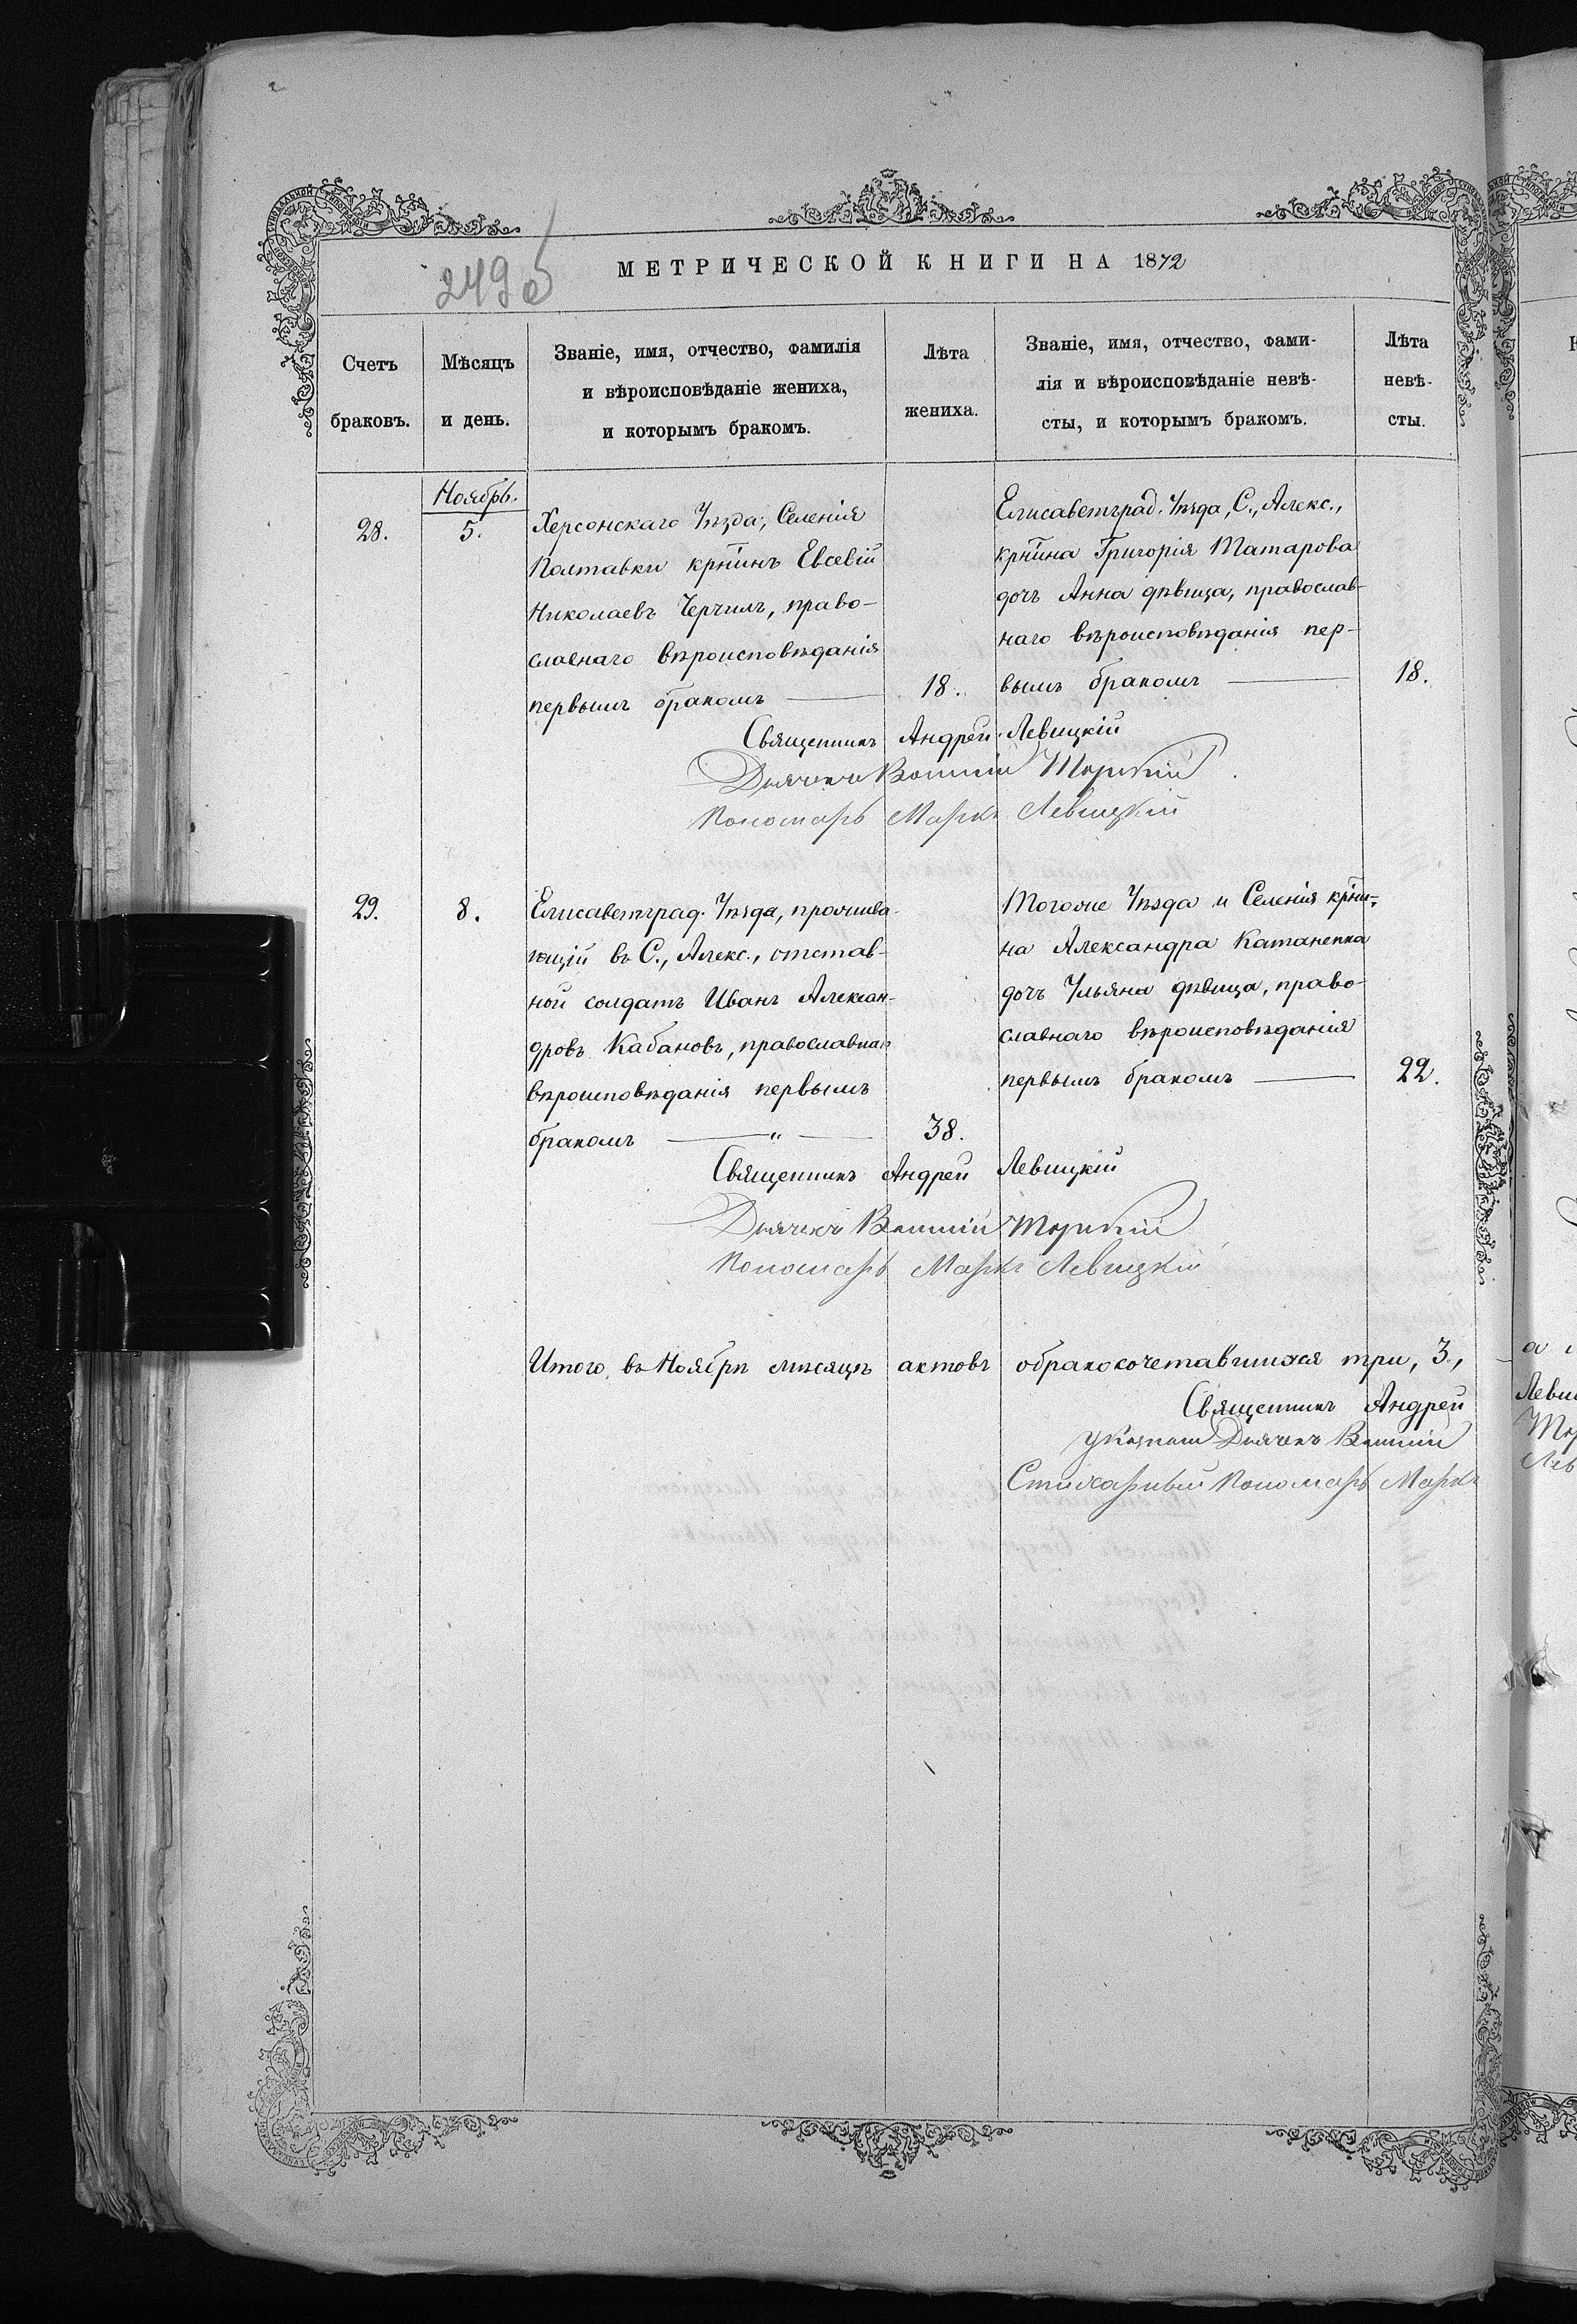 249об
МЕТРИЧЕСКОЙ КНИГИ НА 1872
Счетъ браковъ.
Мѣсяцъ и день.
Званіе, имя, отчество, фамилія
и вѣроисповѣданіе жениха,
и которымъ бракомъ.
Лѣта жениха.
Званіе, имя, отчество, фами-
лія и вѣроисповѣданіе невѣ-
сты, и которымъ бракомъ.
Лѣта невѣ-
сты.
Ноябрь.
28.
5.
Херсонскаго Уѣзда, Селенія
Полтавки крѣстинъ Евсевій
Николаевъ Черчилъ, право-
славнаго вѣроисповѣданія
первымъ бракомъ
18.
Елисаветград. Уѣзда, С., Алекс.,
крнина Григорія Татарова
дочъ Анна дѣвица, православ-
наго вѣроисповѣданія пер-
вымъ бракомъ
18.
Священникъ Андрей Левицкій
Дьячекъ
Пономарь Маркъ Левицкій
29.
8.
Елисаветград. Уѣзда, прожива-
ющій въ С., Алекс., отстав-
ной солдатъ Иванъ Алексан-
дровъ Кабановъ, православнаго
вѣроисповѣданія первымъ
бракомъ — " —
38.
Тогоже Уѣзда и Селенія крни-
на Александра Катаненка
дочъ Ульяна дѣвица, право-
славнаго вѣроисповѣданія
первымъ бракомъ
22.
Священникъ Андрей Левицкій
Дьячекъ
Пономарь Маркъ Левицкій
Итого въ Ноябрѣ мѣсяцѣ актовъ обракосочетавшихся три, 3,
Священникъ Андрей
Дьячекъ
Стихарный Пономарь Маркъ